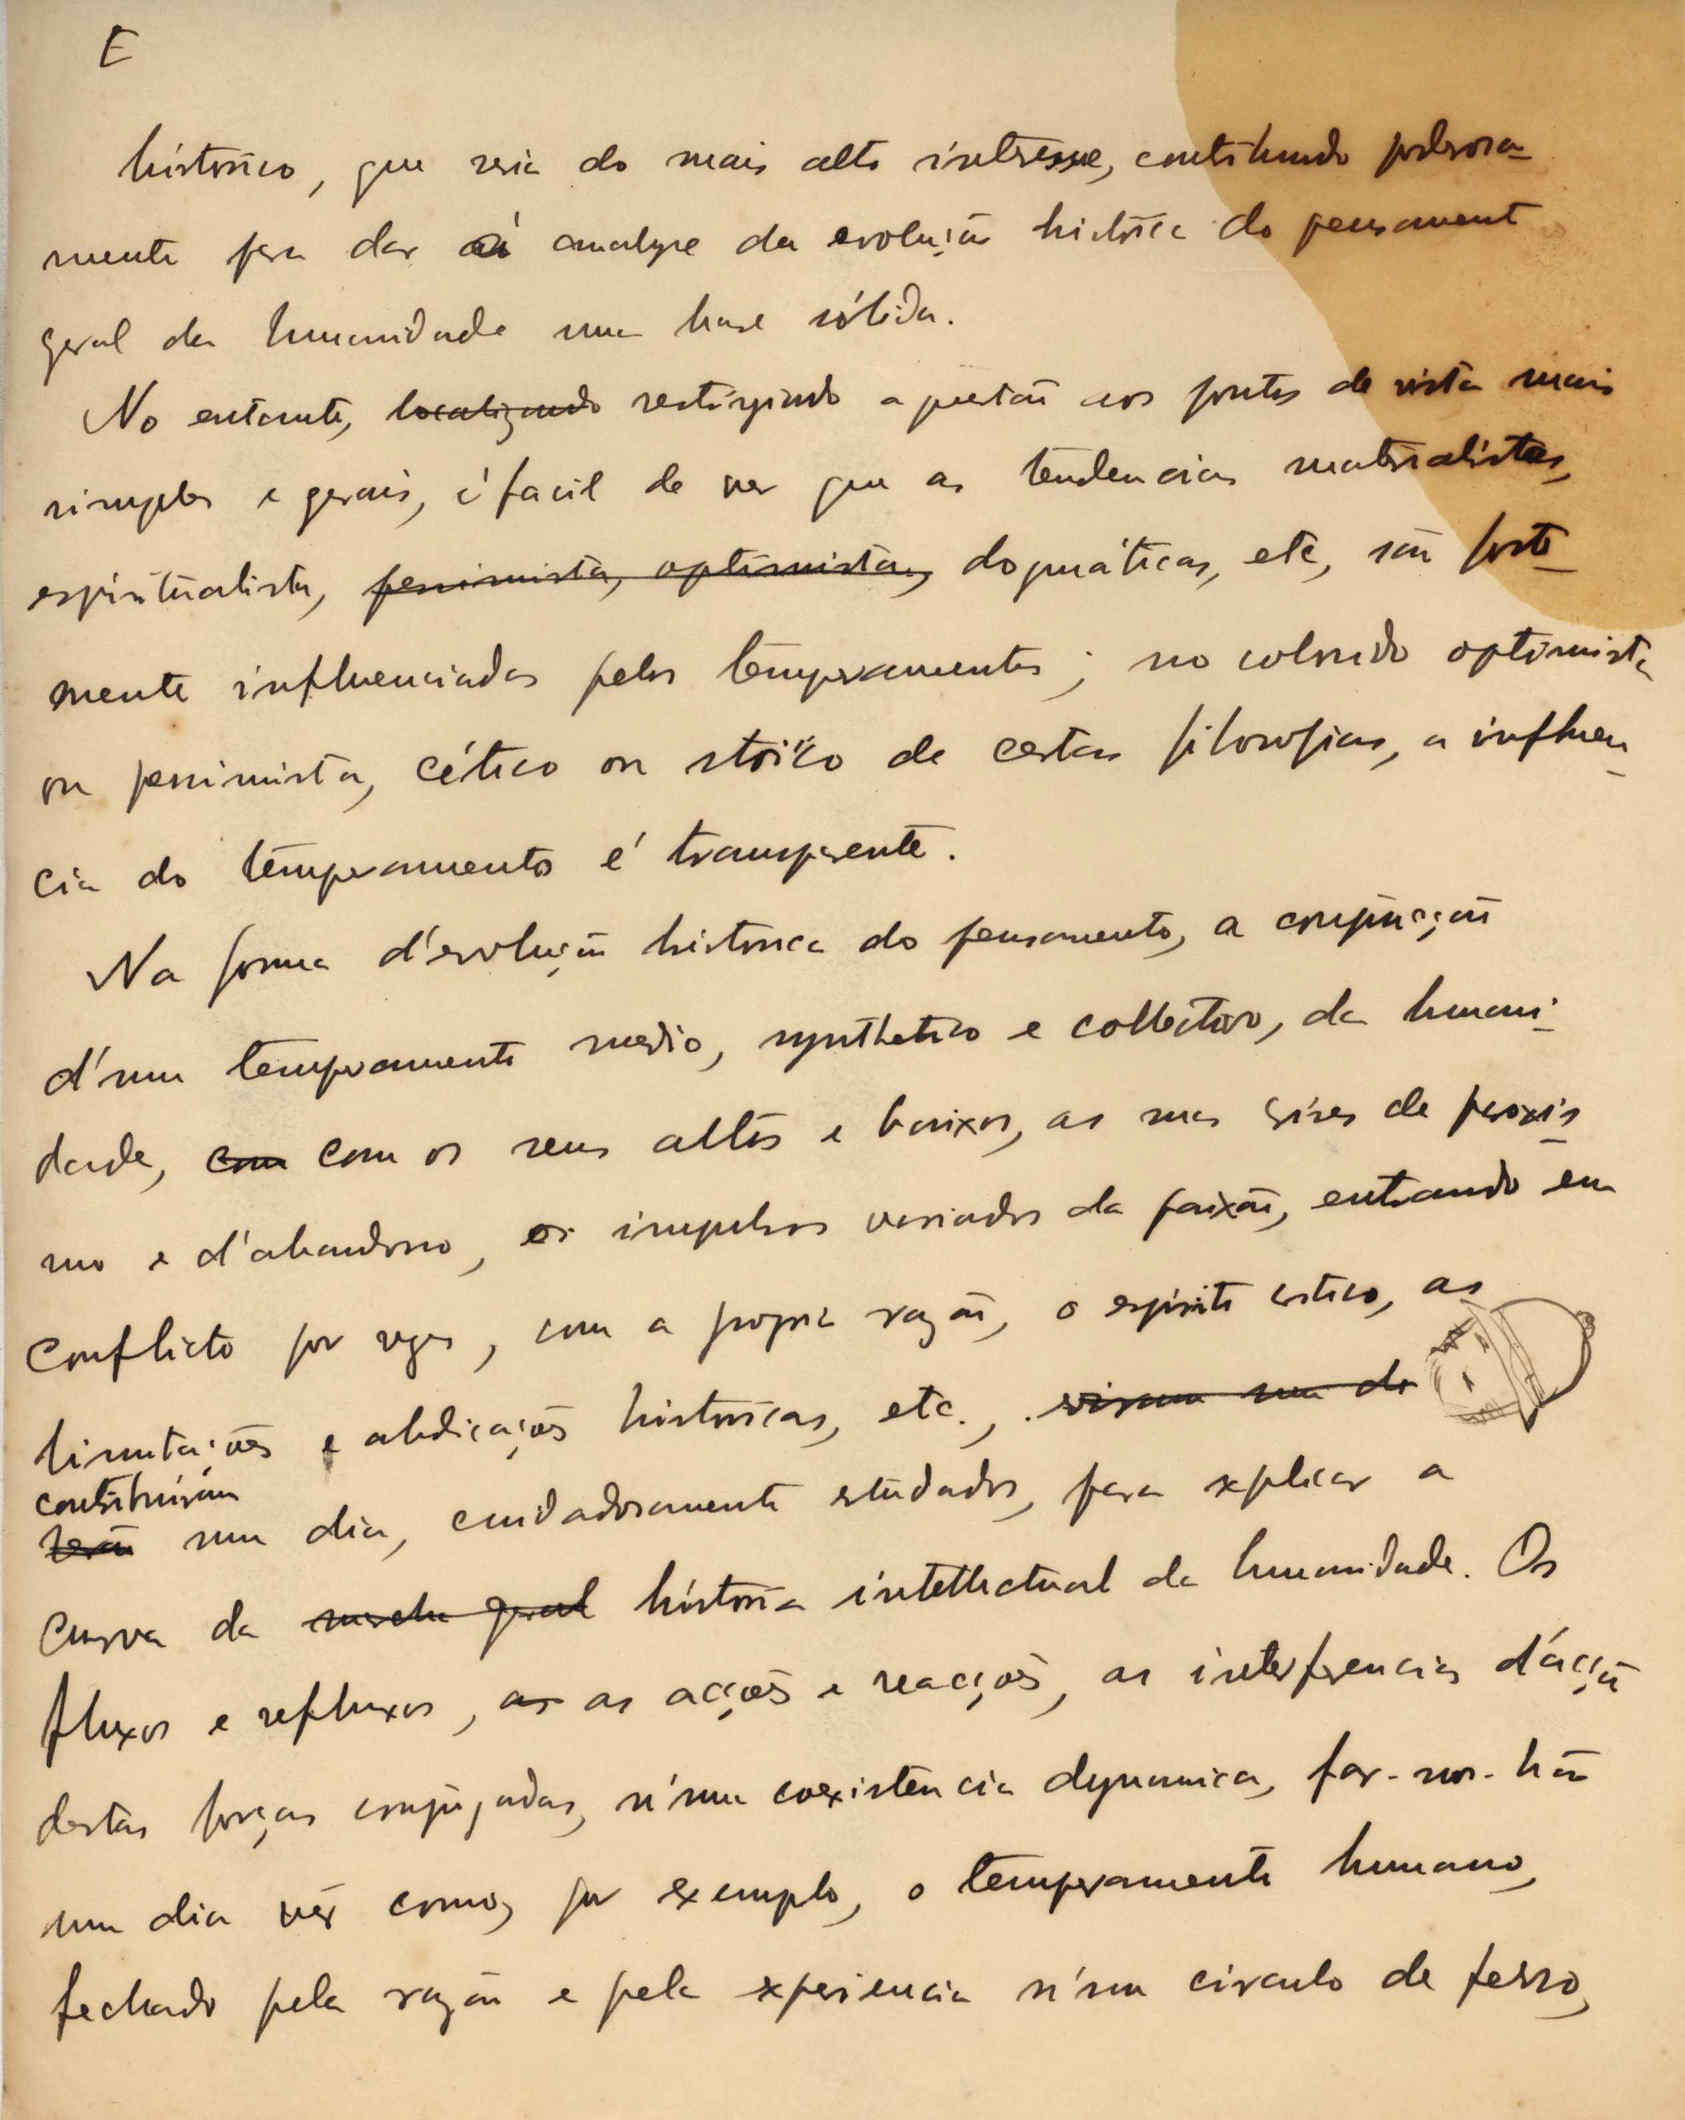 E
historico, que seria do mais alto interesse, contribuindo poderosa-
mente para dar á analyse da evolução histórica do pensamento
geral da humanidade uma base sólida.
No entanto, localizando restringindo a questão aos pontos de vista mais
simples e gerais, é facil de ver que as tendencias materialistas,
espiritualistas, pessimistas, optimistas, dogmáticas, etc, são forte-
mente influenciadas pelos temperamentos; no colorido optimista
ou pessimista, cético ou stoïco de certas filosofias, a influen-
cia do temperamento é transparente.
Na forma d'evolução historica do pensamento, a conjugação
d'um temperamento medio, synthetico e collectivo, da humani-
dade, com com os seus altos e baixos, as suas crises de paroxis-
mo e d'abandono, os impulsos variados da paixão, entrando em
conflicto por vezes, com a propria razão, o espirito critico, as
limitações e abdicações historicas, etc., viram um dia
contribuirão
terão um dia, cuidadosamente estudados, para explicar a
curva da marcha geral história intellectual da humanidade. Os
fluxos e refluxos, as as acções e reacções, as interferencias d'acção
destas forças conjugadas, n'uma coexistencia dynamica, far-nos-hão
um dia vêr como, por exemplo, o temperamento humano,
fechado pela razão e pela experiencia n'um circulo de ferro,